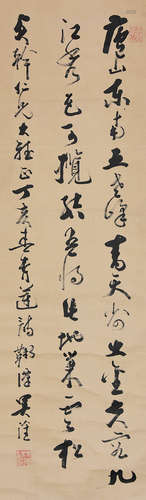 廬山東南五老峰青天削出金芙蓉九
江秀色可攬結吾將此地巢雲松
幹仁兄大雅正丁亥春青蓮詩鞠潭吳淦